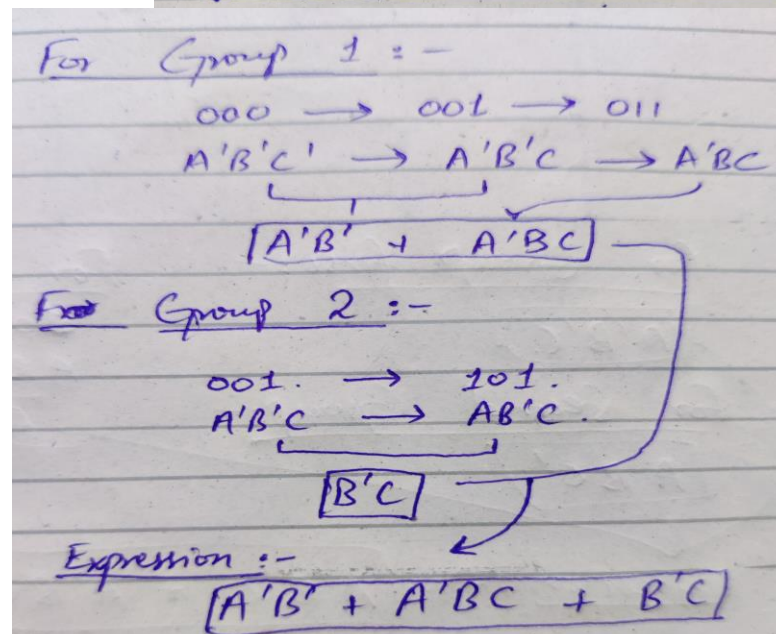 For Group 1 :-
000 → 001 → 011
A'B'C' → A'B'C → A'BC
A'B' + A'BC
Group 2 :-
001. → 101.
A'B'C → AB'C.
B'C
Expression :-
A'B' + A'BC + B'C